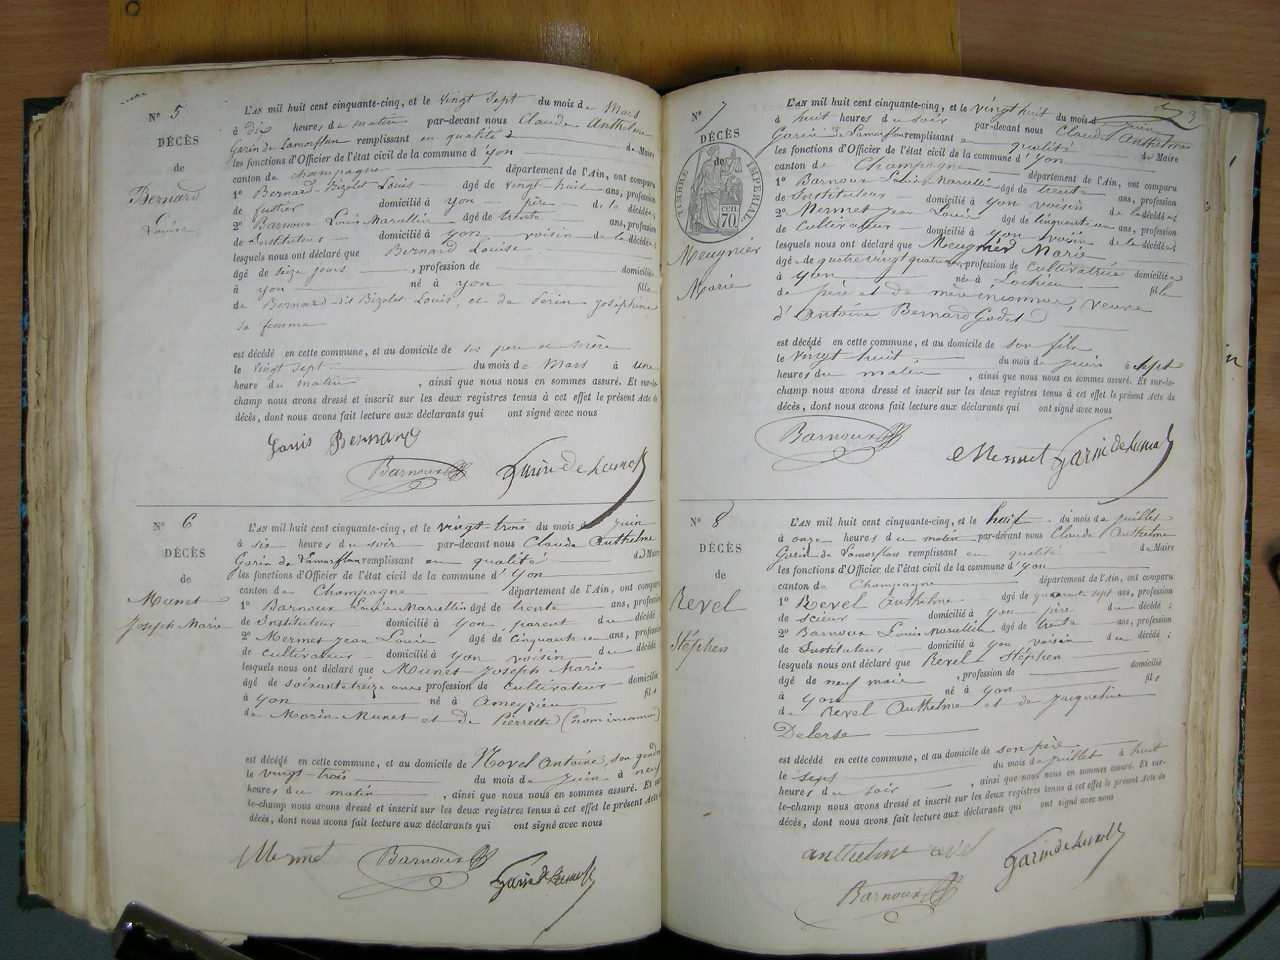 N° 5
DÉCÈS
de
Bernard
Louise
L'AN mil huit cent cinquante-cinq, et le vingt sept du mois de Mars
à dix heures du matin par-devant nous Claude Anthelme
Garin de Lamorflan remplissant en qualité de Maire
les fonctions d'Officier de l'état civil de la commune d'yon
canton de Champagne département de l'Ain, ont comparu
1° Bernard-Bizolet Louis âgé de vingt huit ans, profession
de domicilié à yon père de la décédée
2° Barnoux Louis Marellin âgé de trente ans, profession
de Instituteur domicilié à yon voisin de la décédée
lesquels nous ont déclaré que Bernard Louise
âgé de seize jours , profession de domicilié
à yon né à yon fille
de Bernard dit Bizolet Louis, et de Perin Josephine
sa femme
est décédé en cette commune, et au domicile de ses père et mère
le vingt sept du mois de Mars à une
heure du matin , ainsi que nous nous en sommes assuré. Et sur-le-
champ nous avons dressé et inscrit sur les deux registres tenus à cet effet le présent Acte de
décès, dont nous avons fait lecture aux déclarants qui ont signé avec nous
Louis Bernard
Barnoux Garin de Lamorfl
N° 6
DÉCÈS
de
Munet
Joseph Marie
L'AN mil huit cent cinquante-cinq, et le vingt-trois du mois de juin
à six heures du soir par-devant nous Claude Anthelme
Garin de Lamorflan remplissant en qualité de Maire
les fonctions d'Officier de l'état civil de la commune d'Yon
canton de Champagne département de l'Ain, ont comparu
1° Barnoux Louis Marellin âgé de trente ans, profession
de Instituteur domicilié à yon parent du décédé
2° Mermet Jean Louis âgé de cinquante un ans, profession
de cultivateur domicilié à yon voisin du décédé
lesquels nous ont déclaré que Munet Joseph Marie
âgé de soixante treize ans profession de cultivateur domicilié
à yon né à Ameyzieu fils
de Marin Munet et de Pierrette (nom inconnu)
est décédé en cette commune, et au domicile de Novel Antoine, son gendre
le vingt-trois du mois de juin à neuf
heures du matin , ainsi que nous nous en sommes assuré. Et sur-
le-champ nous avons dressé et inscrit sur les deux registres tenus à cet effet le présent Acte de
décès, dont nous avons fait lecture aux déclarants qui ont signé avec nous
Mermet Barnoux Garin de Lamorfl
3
N° 7
DÉCÈS
de
TIMBRE IMPÉRIAL
70 CEN
Meugnier
Marie
L'AN mil huit cent cinquante-cinq, et le vingt huit du mois de juin
à huit heures du soir par-devant nous Claude Anthelme
Garin de Lamorflan remplissant qualité de Maire
les fonctions d'Officier de l'état civil de la commune d'Yon
canton de Champagne département de l'Ain, ont comparu
1° Barnoux Louis Marellin âgé de trente ans, profession
de Instituteur domicilié à yon voisin de la décédée
2° Mermet Jean Louis âgé de cinquante un ans, profession
de cultivateur domicilié à yon voisin de la décédée
lesquels nous ont déclaré que Meugnier Marie
âgé de quatre vingt quatre ans, profession de cultivatrice domicilié
à yon né à Lochieu fille
de père et de mère inconnus, veuve
d'Antoine Bernard Godet
est décédé en cette commune, et au domicile de son fils
le vingt huit du mois de juin à sept
heures du matin , ainsi que nous nous en sommes assuré. Et sur-le-
champ nous avons dressé et inscrit sur les deux registres tenus à cet effet le présent Acte de
décès, dont nous avons fait lecture aux déclarants qui ont signé avec nous
Barnoux Mermet Garin de Lamorfl
N° 8
DÉCÈS
de
Revel
Stéphen
L'AN mil huit cent cinquante-cinq, et le huit du mois de juillet
à onze heures du matin par-devant nous Claude Anthelme
Garin de Lamorflan remplissant en qualité de Maire
les fonctions d'Officier de l'état civil de la commune d'Yon
canton de Champagne département de l'Ain, ont comparu
1° Revel Anthelme âgé de quarante sept ans, profession
de scieur domicilié à yon père du décédé ;
2° Barnoux Louis Marellin âgé de trente ans, profession
de Instituteur domicilié à yon voisin du décédé ;
lesquels nous ont déclaré que Revel Stéphen
âgé de neuf mois , profession de domicilié
à yon né à yon fils
de Revel Anthelme et de Jacqueline
Delerse
est décédé en cette commune, et au domicile de son père
le sept du mois de juillet à huit
heures du soir , ainsi que nous nous en sommes assuré. Et sur-
le-champ nous avons dressé et inscrit sur les deux registres tenus à cet effet le présent Acte de
décès, dont nous avons fait lecture aux déclarants qui ont signé avec nous
anthelme revel Garin de Lamorfl
Barnoux